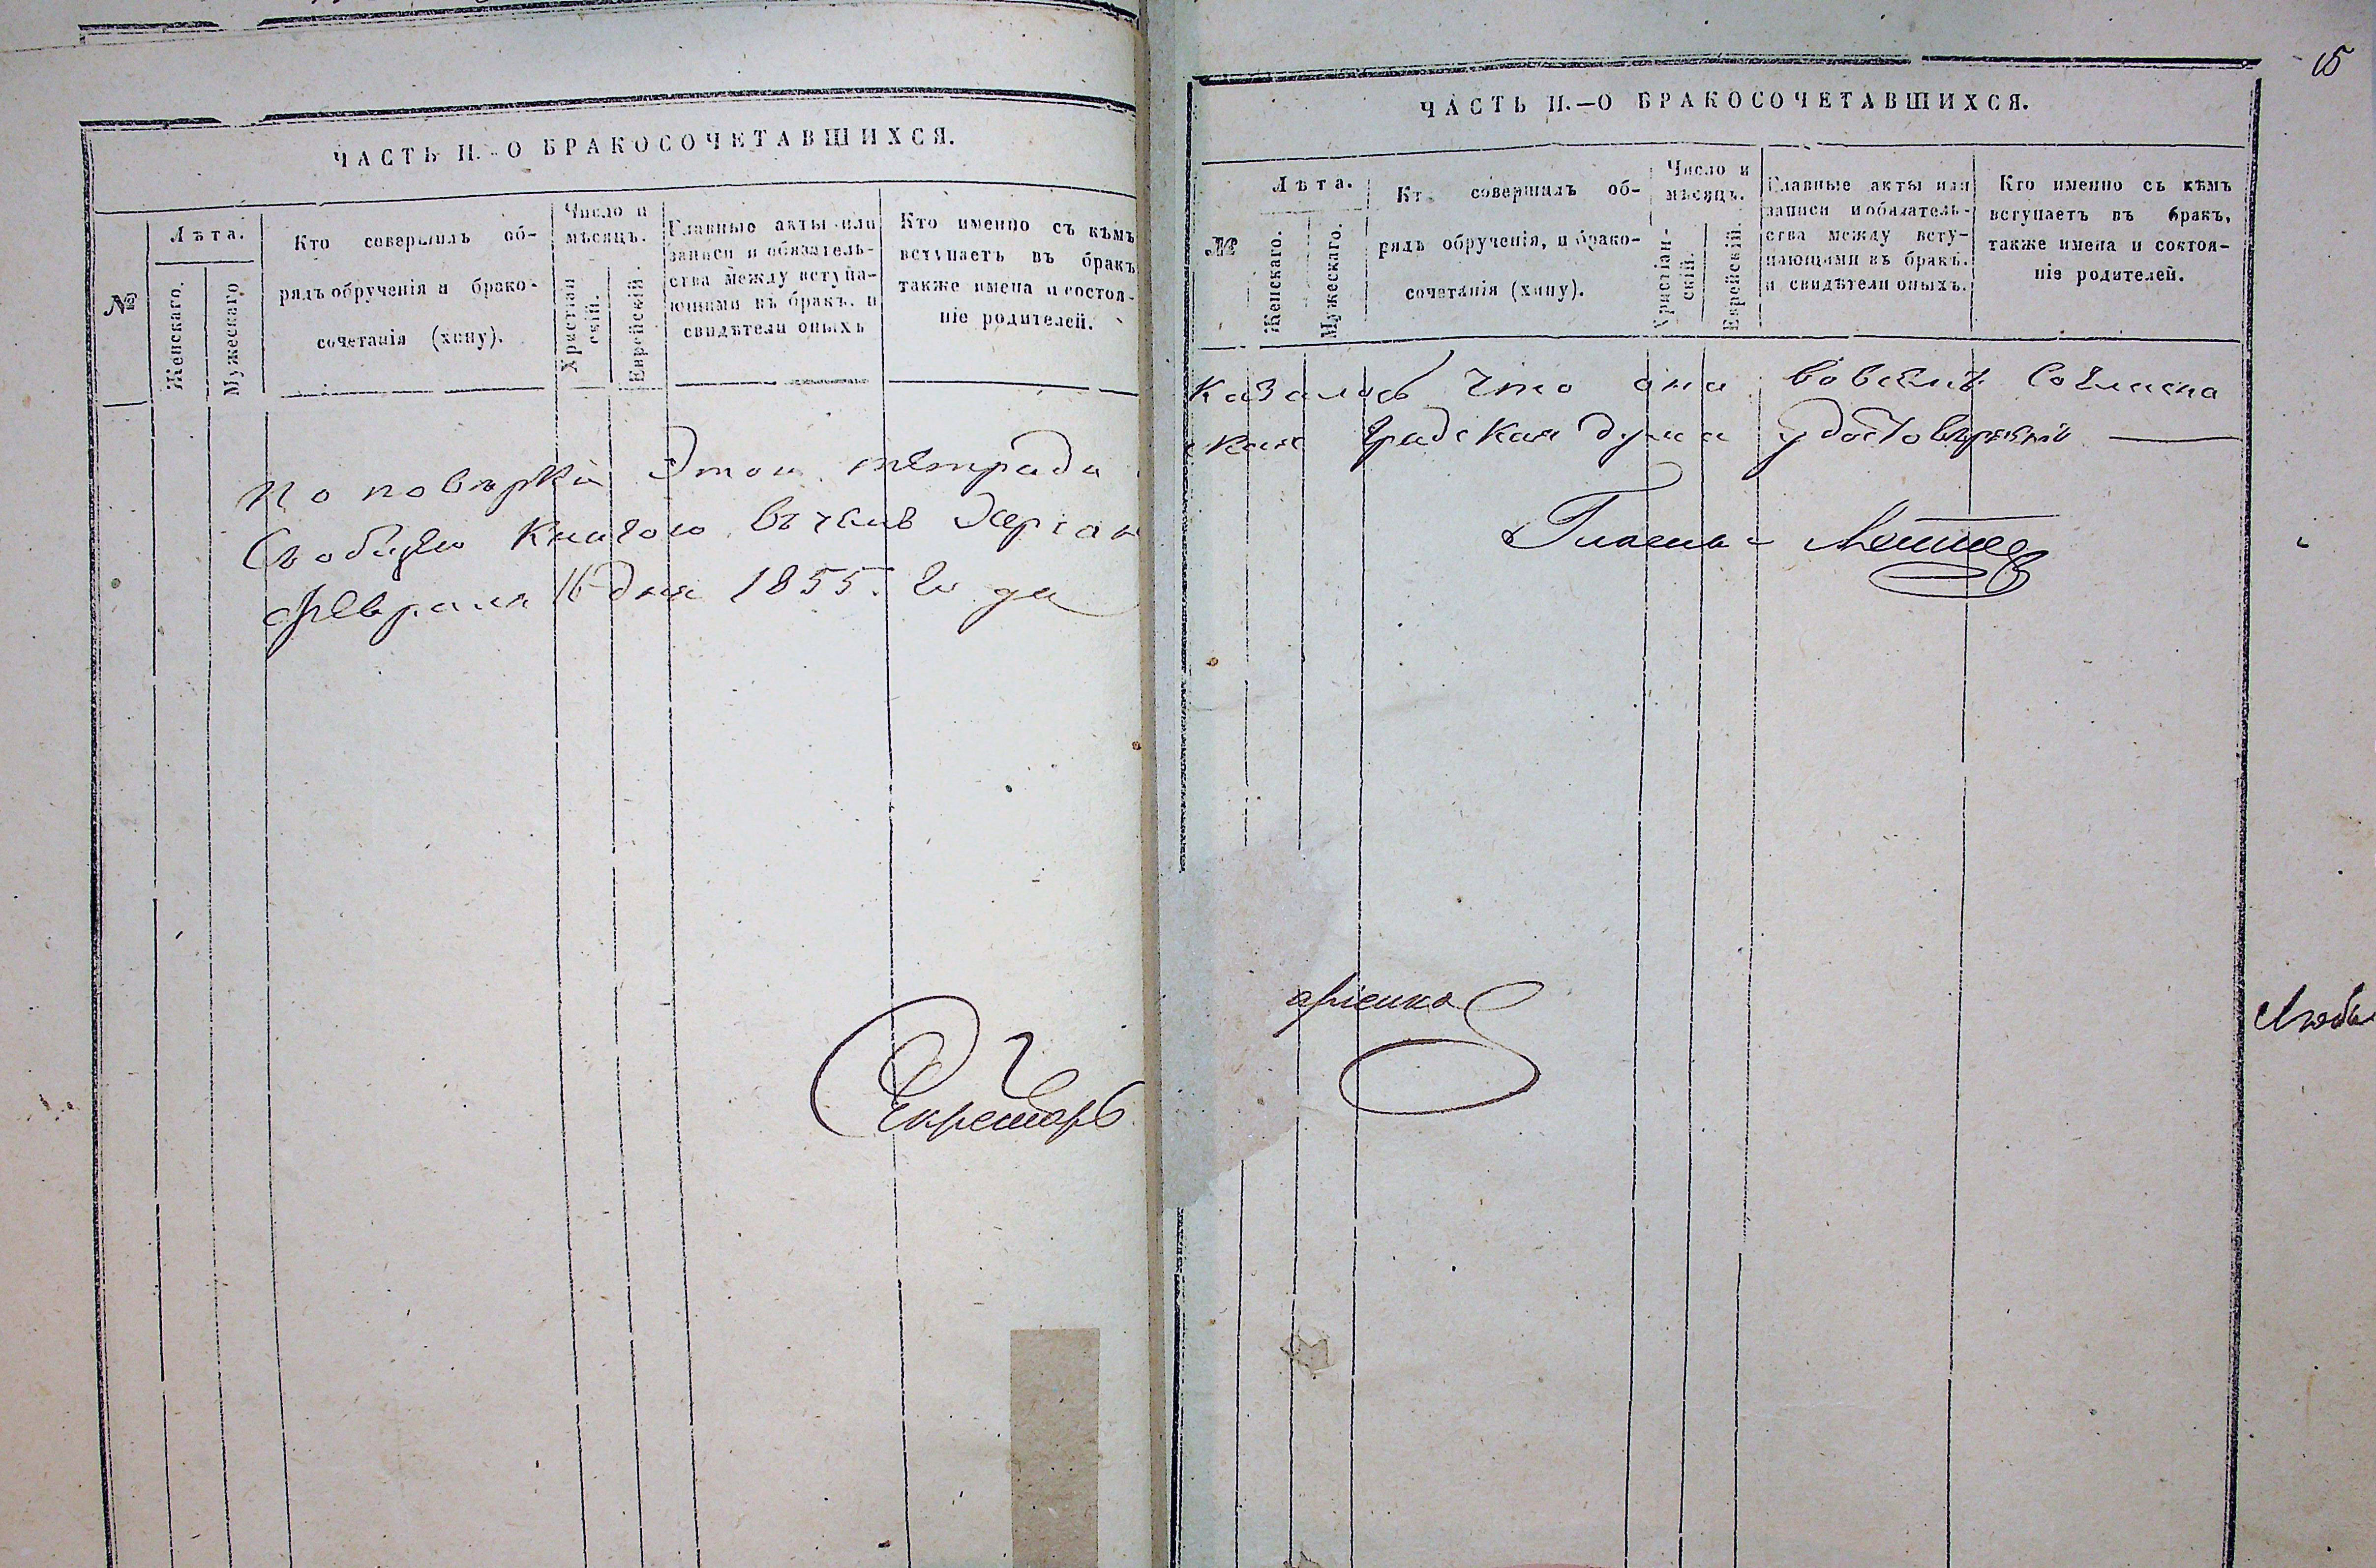 ЧАСТЬ II.-О БРАКОСОЧЕТАВШИХСЯ.
№
Лѣта.
Женскаго.
Мужескаго
Кто совершилъ об-
рядъ обрученія и брако-
сочетанія (хипу).
Число и
мѣсяцъ.
Христіан
скій.
Еврейскій.
Главные акты или
записи и обязатель-
ства между вступа-
ющими въ бракъ. и
свидѣтели оныхъ
Кто именно съ кѣмъ
вступаетъ въ бракъ
также имена и состоя-
ніе родителей.
По повѣрки Этой тетради
Съобщею Книгою въ чемъ
Февраля 16 дня 1855. Года
Секретарь
15
ЧАСТЬ II.—О БРАКОСОЧЕТАВШИХСЯ.
№
Лѣта.
Женскаго.
Мужескаго.
Кто совершилъ об-
рядъ обрученія, и брако-
сочетанія (хипу).
Число и
мѣсяцъ.
Христіан-
скій.
Еврейскій.
Главные акты или
записи и обязатель-
ства между всту-
пающими въ бракъ.
и свидѣтели оныхъ.
Кто именно съ кѣмъ
вступаетъ въ бракъ,
также имена и состоя-
ніе родителей.
казалось что она вовсемъ Согласна
Градская дума
Гласный